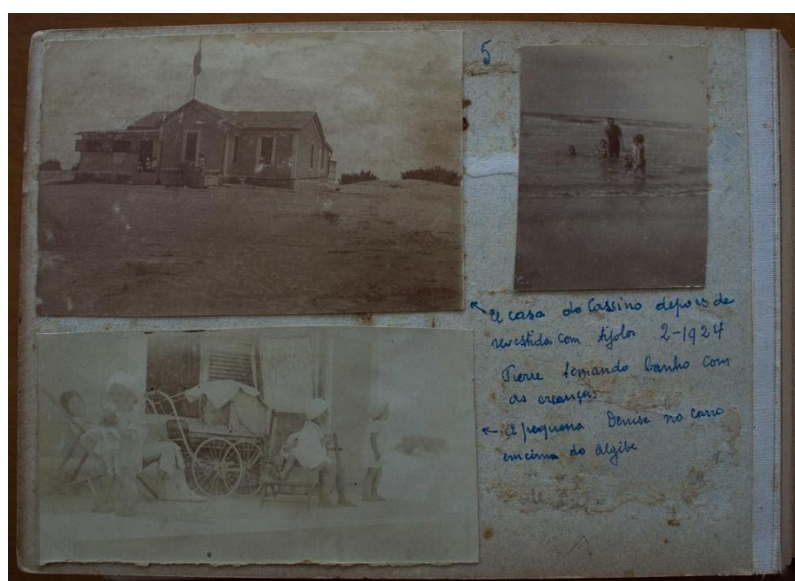 5
A casa do Cassino depois de
revestida com tijolos 2-1924
Pierre tomando banho com
as creanças
A pequena Denise no carro
em cima do algibe